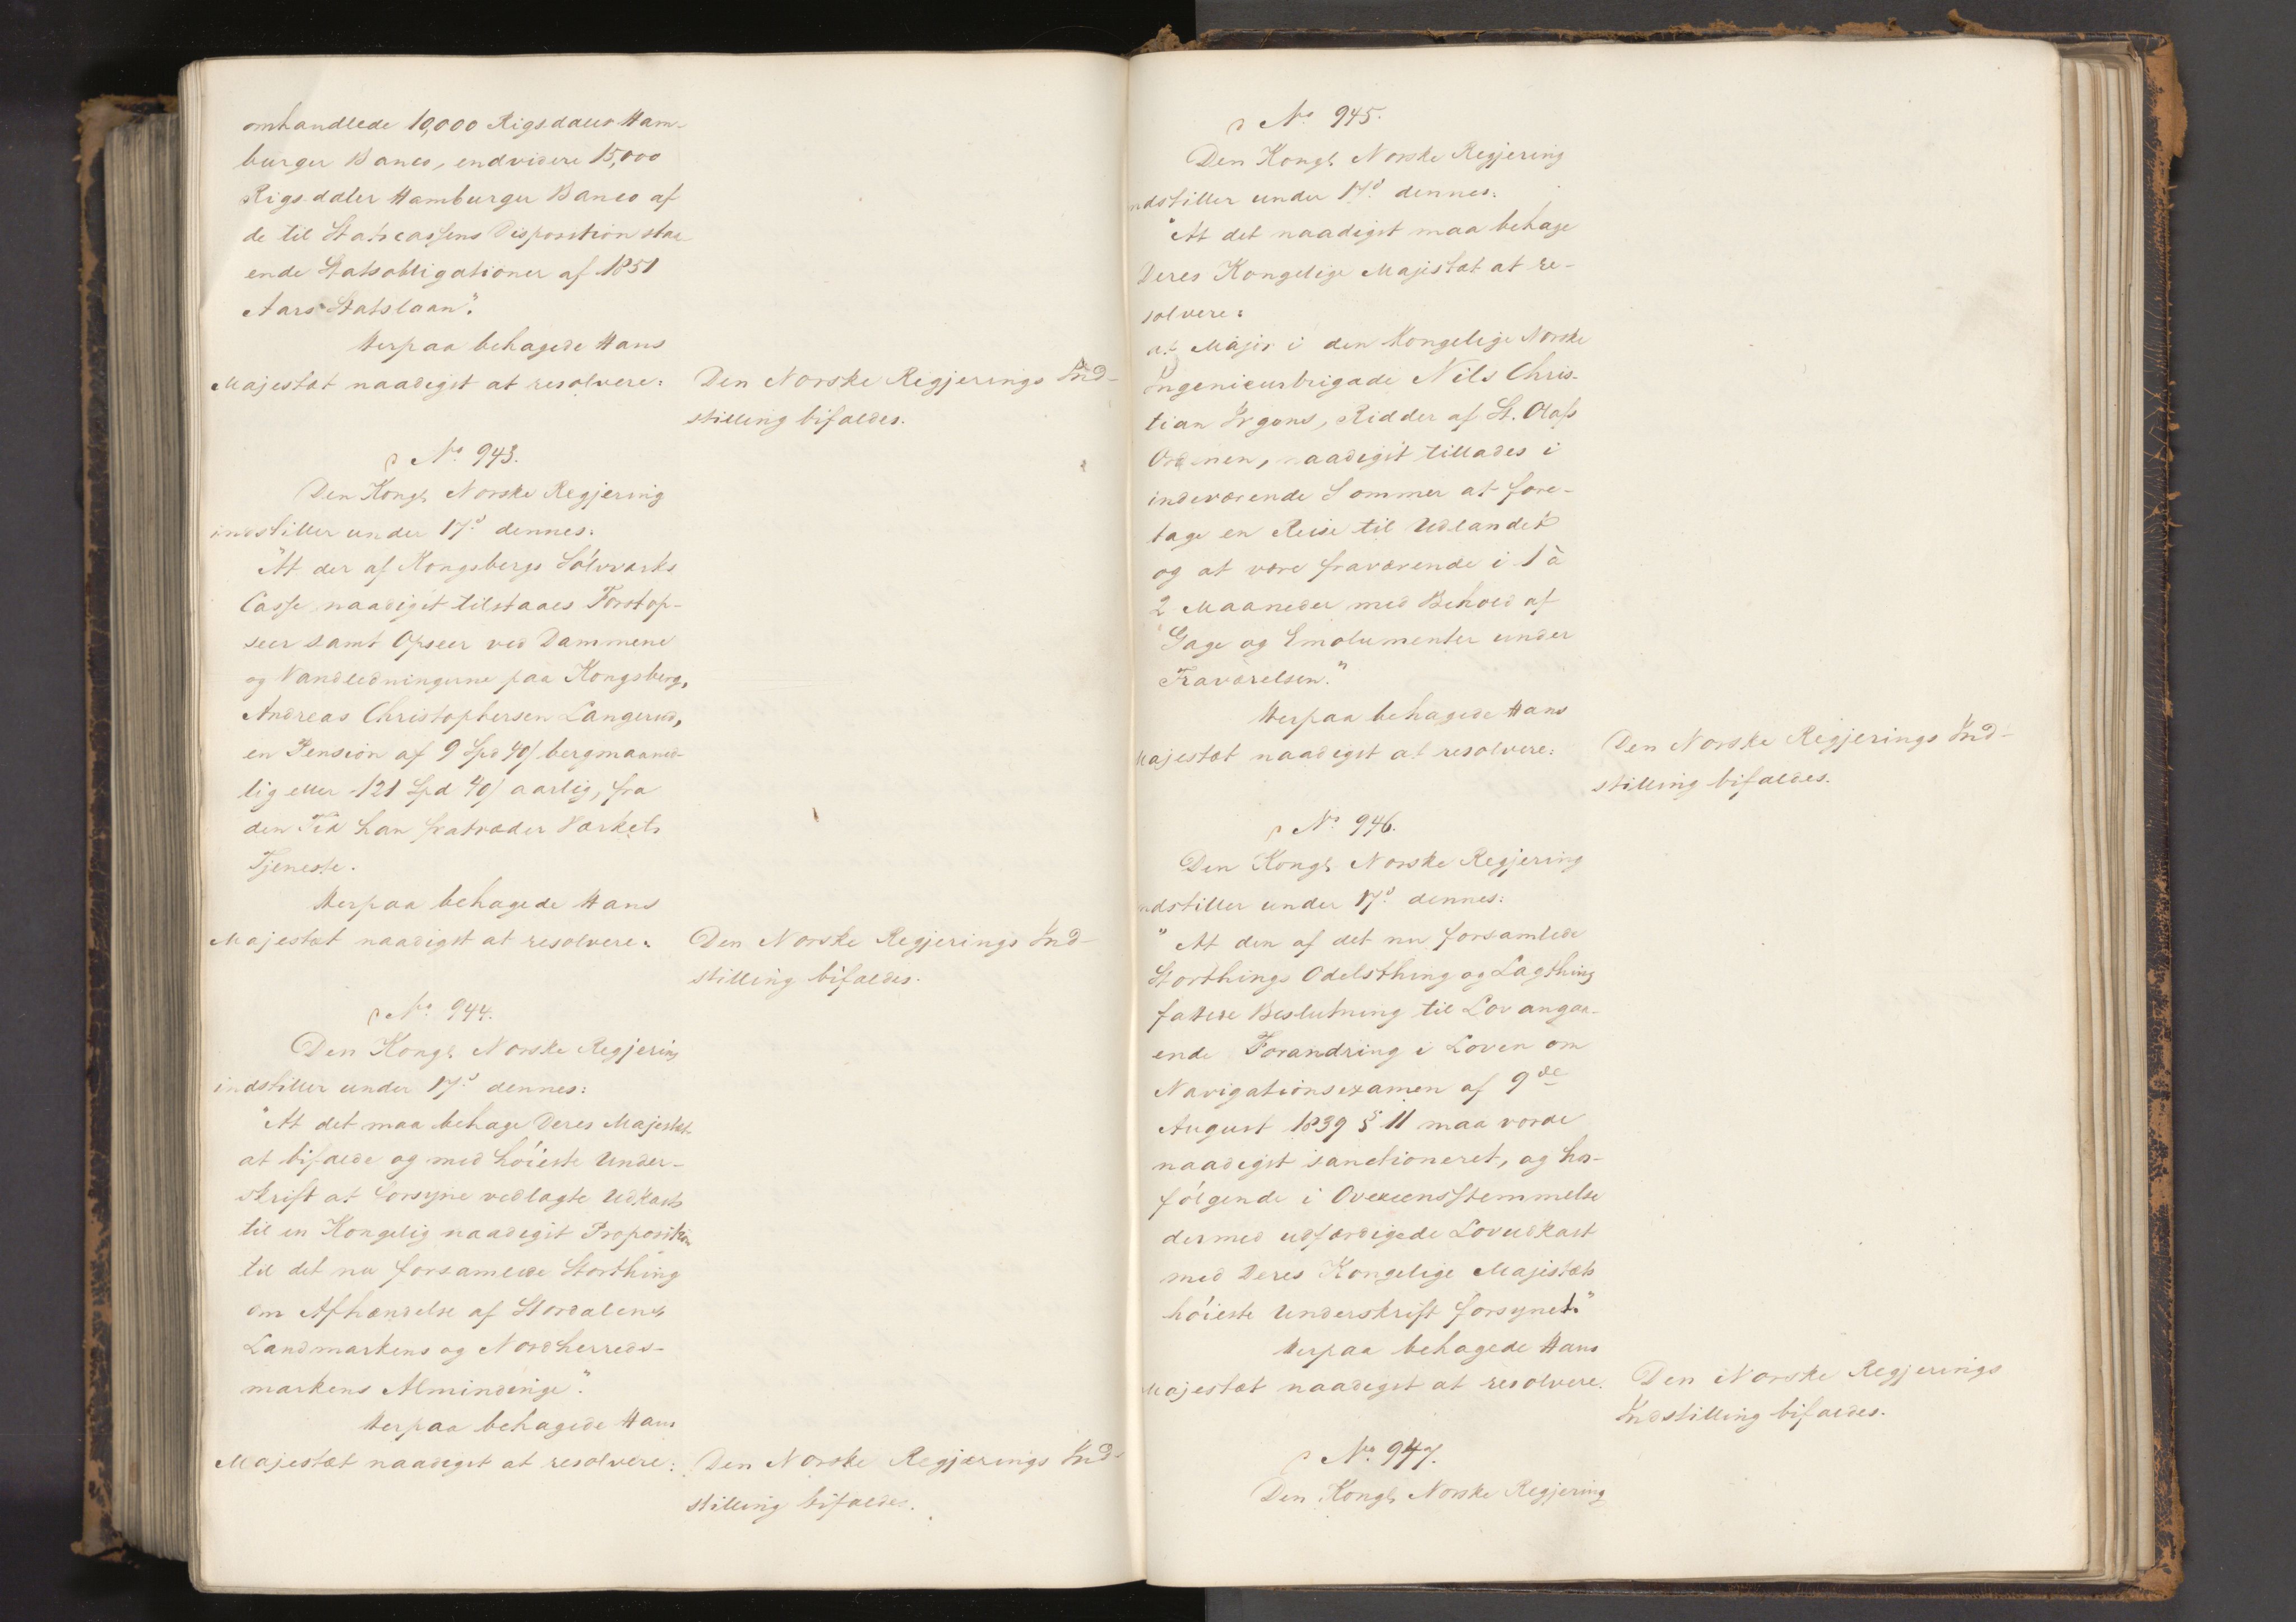 omhandlede 10,000 Rigsdaler Ham-
burger Banco, endvidere 15,000
Rigsdaler Hamburger Banco af
de til Statscassens Disposition staa-
ende Statsobligationer af 1851
Aars Statslaan".
Herpaa behagede Hans
Majestæt naadigst at resolvere: Den Norske Regjerings Ind-
stilling bifaldes.
No 943.
Den Kongl. Norske Regjering
indstiller under 17d dennes:
"At der af Kongsbergs Sölvværks
Casse naadigst tilstaaes Forstop-
seer samt Opseer ved Dammene
og Vandledningerne paa Kongsberg,
Andreas Christophersen Langerud,
en Pension af 9 Spd 40/ bergmaaned-
lig eller 121 Spd 40/ aarlig, fra
den Tid han fratræder Værkets
Tjeneste.
Herpaa behagede Hans
Majestæt naadigst at resolvere: Den Norske Regjerings Ind-
stilling bifaldes.
No 944.
Den Kongl. Norske Regjering
indstiller under 17d dennes:
"At det maa behage Deres Majestæt
at bifalde og med höieste Under-
skrift at forsyne vedlagte Udkast
til en Kongelig naadigst Proposition
til det nu forsamlede Storthing
om Afhændelse af Stordalens
Landmarkens og Nordherreds-
markens Almindinge".
Herpaa behagede Hans
Majestæt naadigst at resolvere: Den Norske Regjerings Ind-
stilling bifaldes.
No 945.
Den Kongl. Norske Regjering
indstiller under 17d dennes:
"At det naadigst maa behage
Deres Kongelige Majestæt at re-
solvere:
at Major i den Kongelige Norske
Ingenieurbrigade Nils Chris-
tian Irgens, Ridder af St. Olafs
Ordenen, naadigst tillades i
indeværende Sommer at fore-
tage en Reise til Udlandet
og at være fraværende i 1 à
2 Maaneder med Behold af
Gage og Emolumenter under
Fraværelsen."
Herpaa behagede Hans
Majestæt naadigst at resolvere: Den Norske Regjerings Ind-
stilling bifaldes.
No 946.
Den Kongl. Norske Regjering
indstiller under 17d dennes:
"At den af det nu forsamlede
Storthings Odelsthing og Lagthing
fattede Beslutning til Lov angaa-
ende Forandring i Loven om
Navigationsexamen af 9de
August 1839 § 11 maa vorde
naadigst sanctioneret, og hos-
fölgende i Overeensstemmelse
dermed udfærdigede Lovudkast
med Deres Kongelige Majestæts
höieste Underskrift forsynet."
Herpaa behagede Hans
Majestæt naadigst at resolvere: Den Norske Regjerings
Indstilling bifaldes.
No 947.
Den Kongl. Norske Regjering